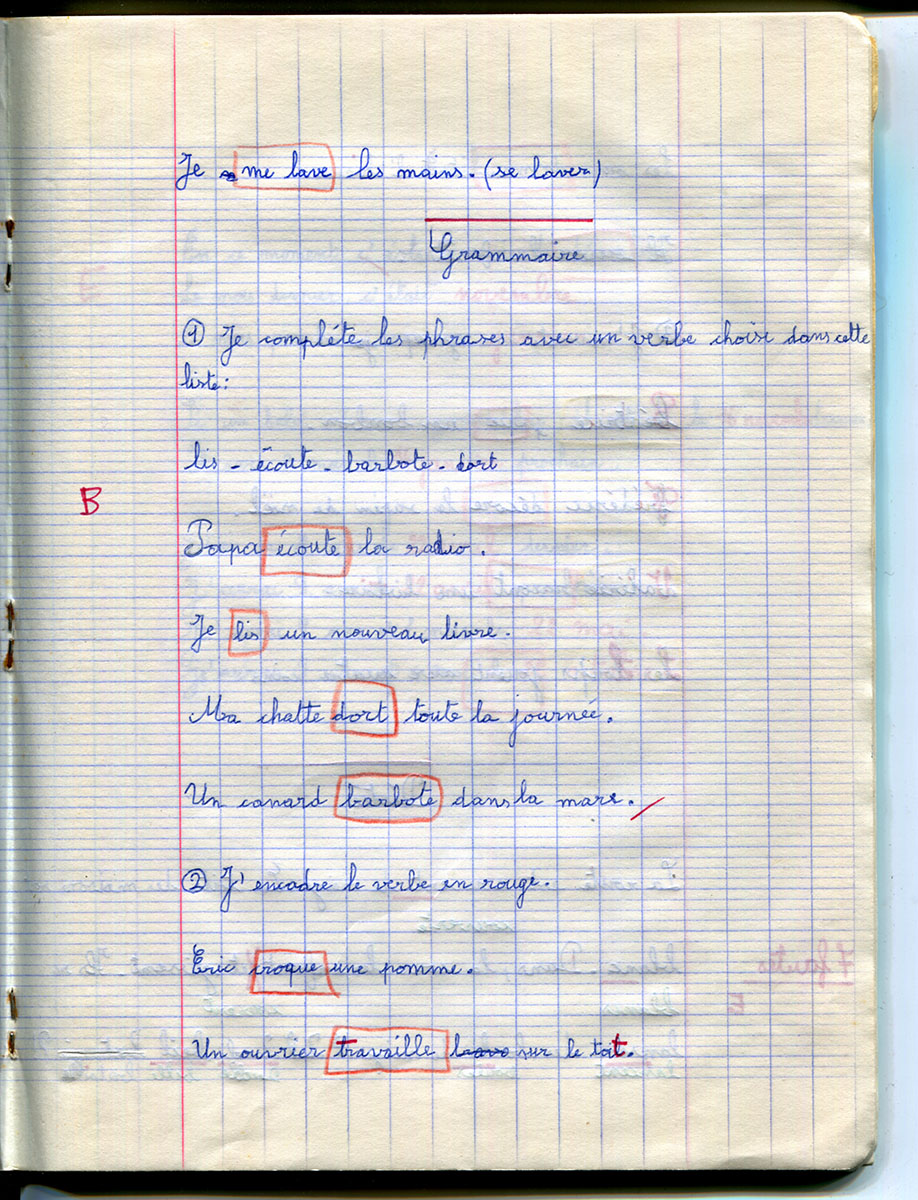 Je me lave les mains. (se laver)
Grammaire
① Je compléte les phrases avec un verbe choisi dans cette
liste:
lis - écoute - barbote - dort
B
Papa écoute la radio.
Je lis un nouveau livre.
Ma chatte dort toute la journée.
Un canard barbote dans la mare.
② J'encadre le verbe en rouge.
Eric croque une pomme.
Un ouvrier travaille sur le toit.